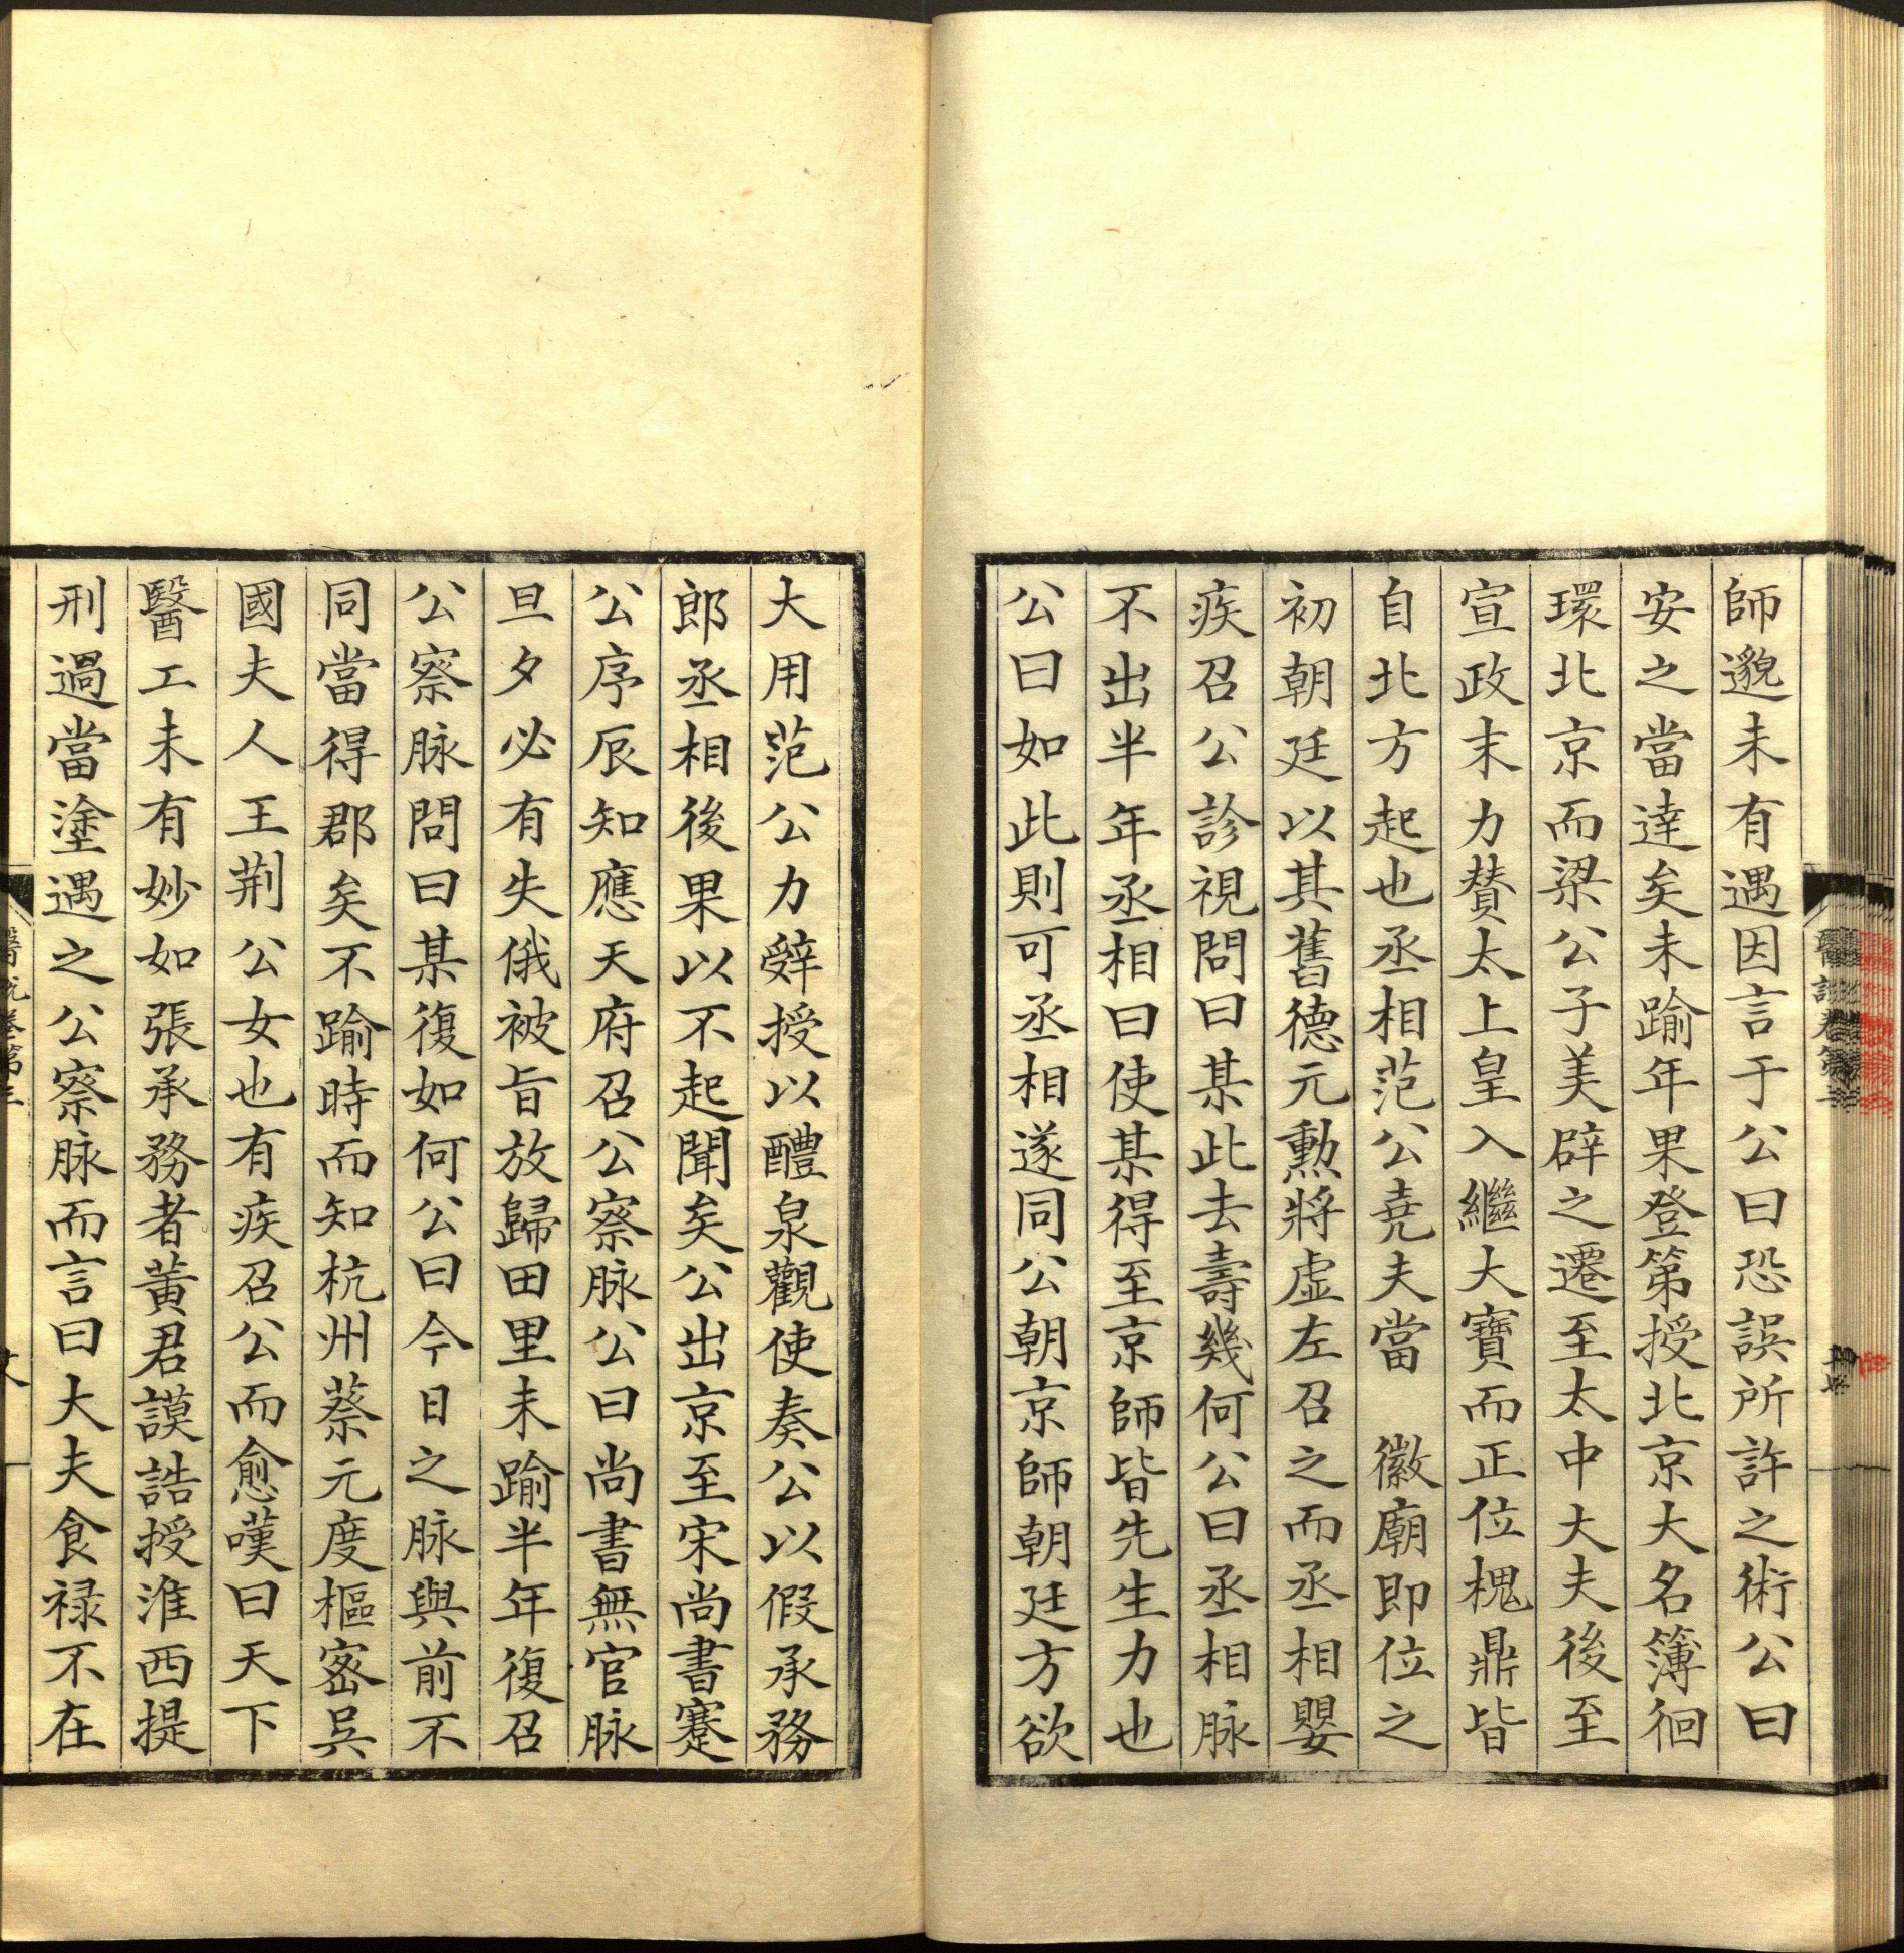 師邈未有遇因言于公曰恐誤所許之術公曰
安之當達矣未踰年果登第授北京大名簿徊
環北京而梁公子美辟之遷至太中大夫後至
宣政末力賛太上皇入繼大寶而正位槐鼎皆
自北方起也丞相范公堯夫當　徽廟即位之
初朝廷以其舊德元勲將虛左召之而丞相嬰
疾召公診視問曰某此去壽幾何公曰丞相脉
不出半年丞相曰使某得至京師皆先生力也
公曰如此則可丞相遂同公朝京師朝廷方欲
大用范公力辭授以醴泉觀使奏公以假承務
郎丞相後果以不起聞矣公出京至宋尚書蹇
公序辰知應天府召公察脉公曰尚書無官脉
旦夕必有失俄被旨放歸田里未踰半年復召
公察脉問曰某復如何公曰今日之脉與前不
同當得郡矣不踰時而知杭州蔡元度樞宻吳
國夫人王荆公女也有疾召公而愈嘆曰天下
醫工未有妙如張承務者黃君謨誥授淮西提
刑過當塗遇之公察脉而言曰大夫食禄不在
醫說卷第二